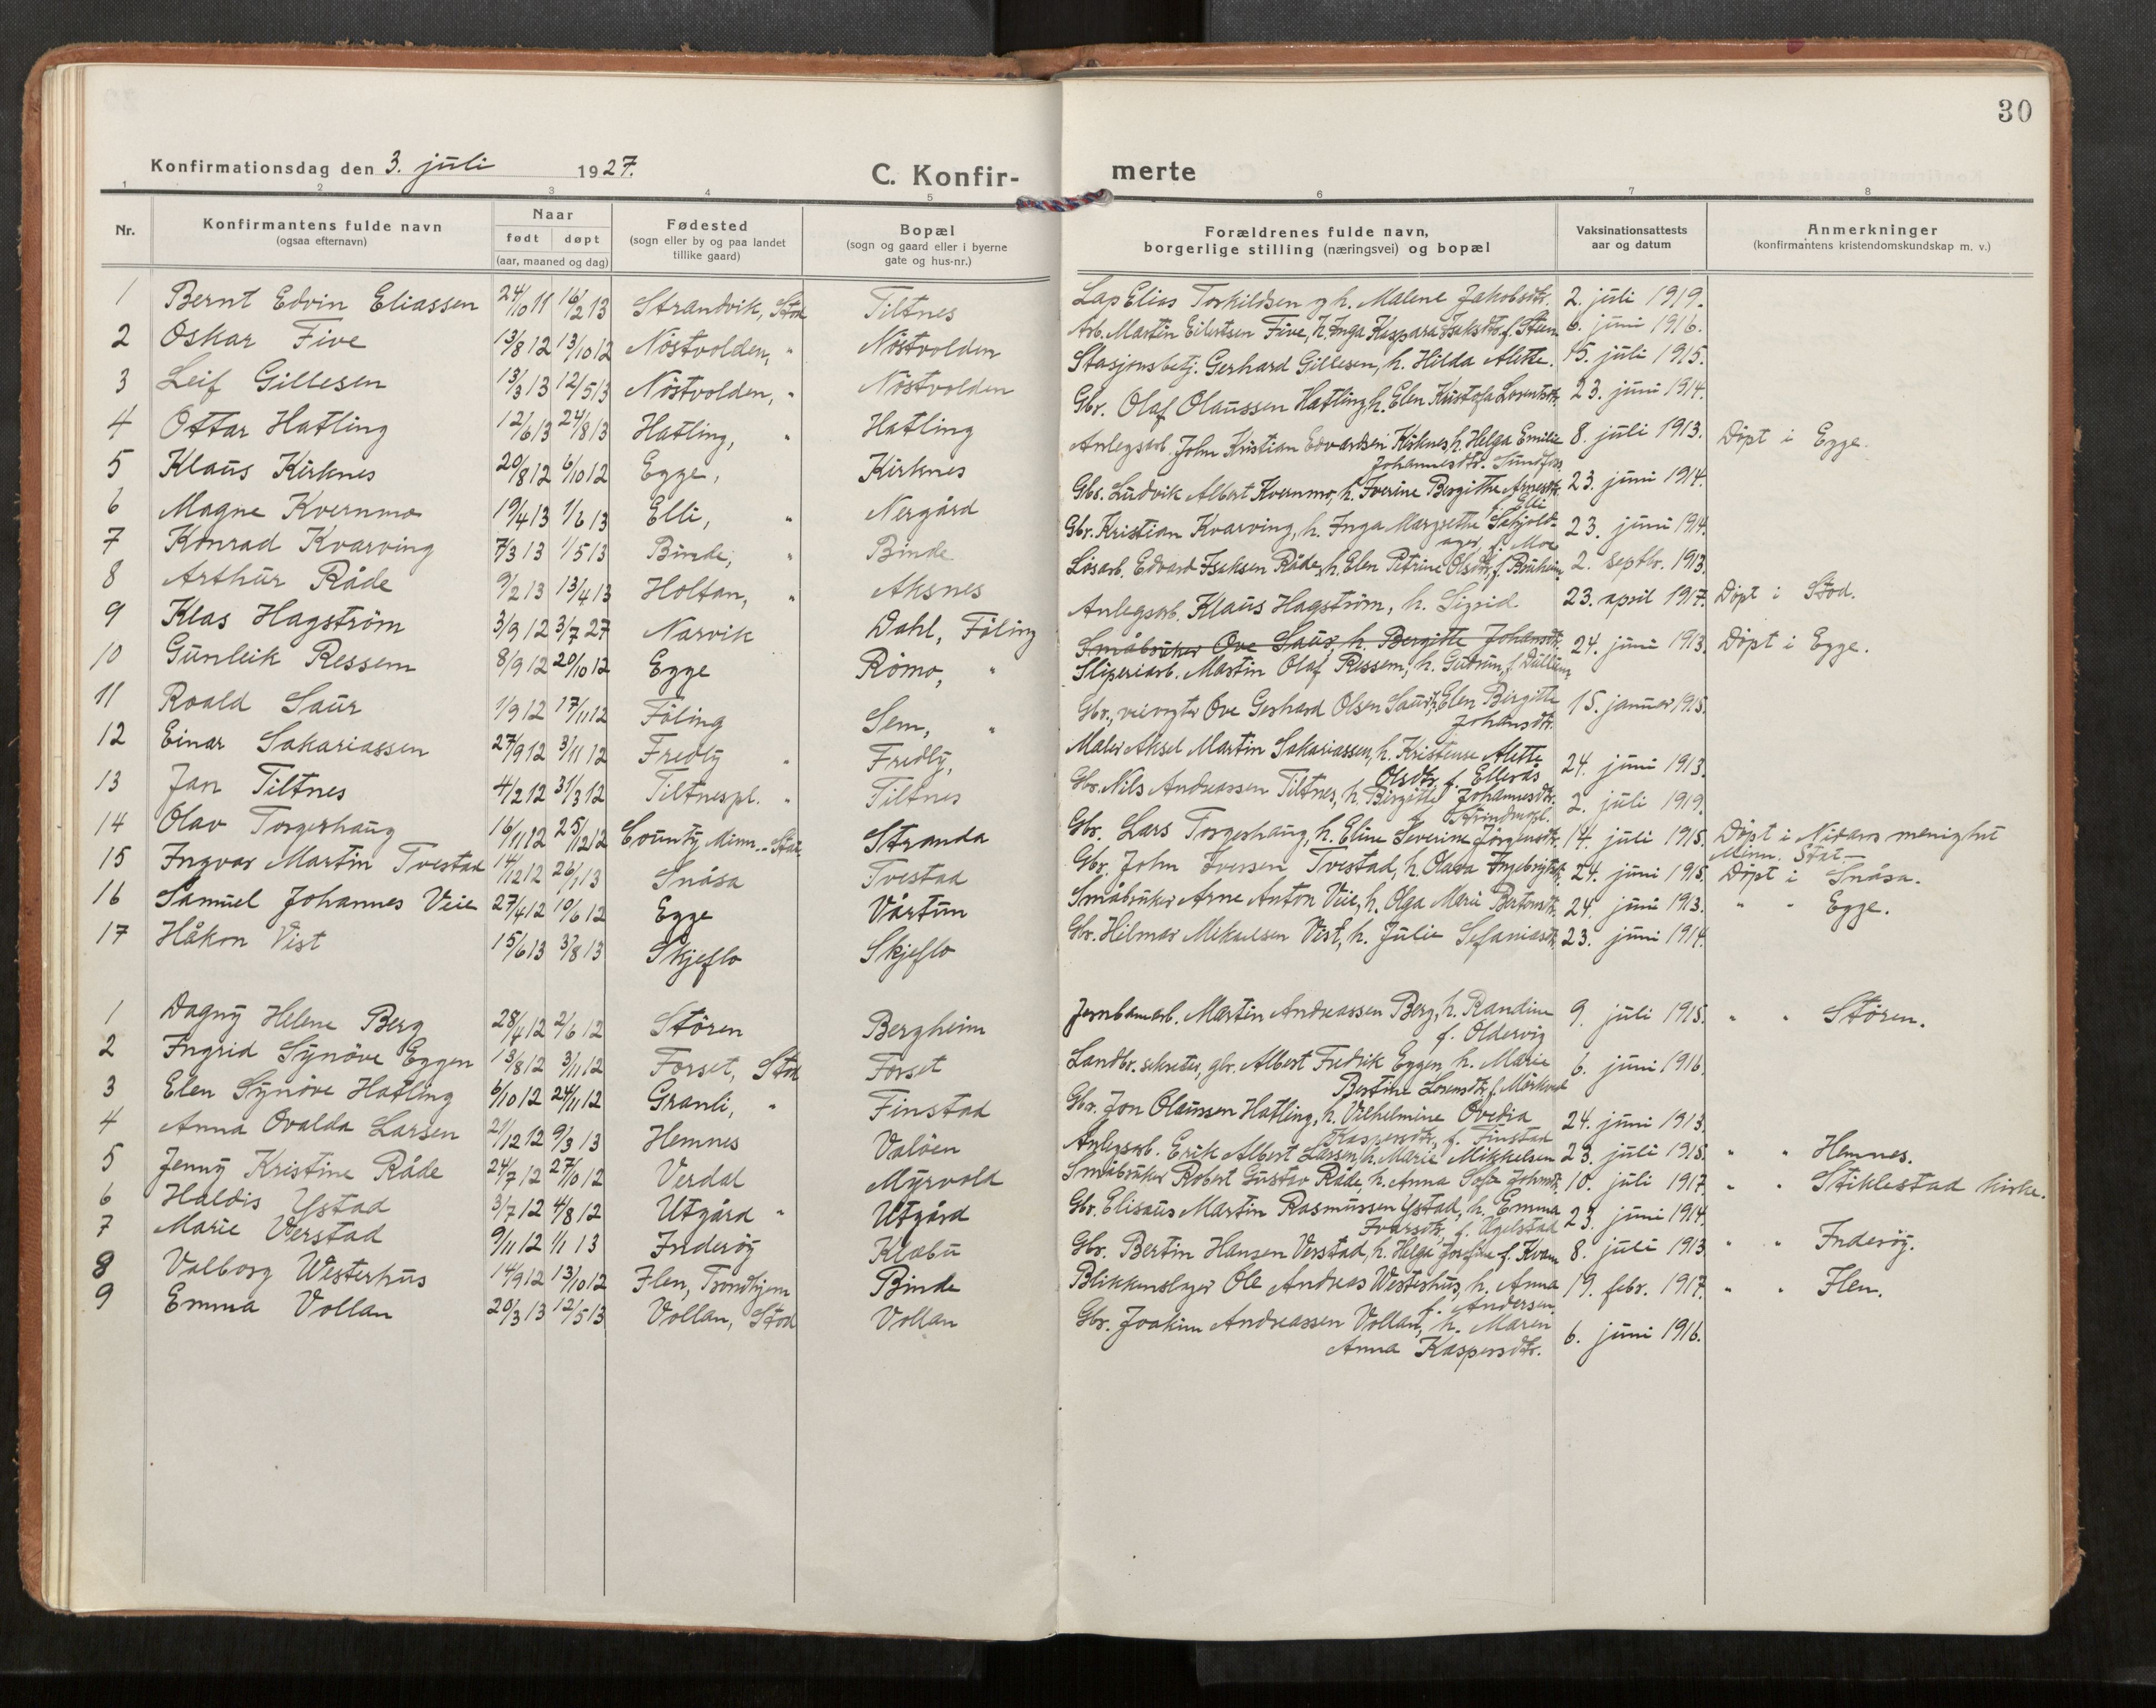 30
Konfirmationsdag den 3. juli 1927.
C. Konfirmerte
1 2 3 4 5 6 7 8
Nr. Konfirmantens fulde navn (ogsaa efternavn) Naar født døpt (aar, maaned og dag) Fødested (sogn eller by og paa landet tillike gaard) Bopæl (sogn og gaard eller i byerne gate og hus-nr.) Forældrenes fulde navn, borgerlige stilling (næringsvei) og bopæl Vaksinationsattests aar og datum Anmerkninger (konfirmantens kristendomskundskap m. v.)
1 Bernt Edvin Eliassen 24/10 11 16/2 13 Strandvik, Stod Tiltnes Lap Elias Torkildsen og h. Malene Jakobsdtr. 2. juli 1919.
2 Oskar Five 13/8 12 13/10 12 Nöstvolden, " Nöstvolden Arb. Martin Eilertsen Five, h. Inga Kaspara Isaksdtr. f. Steen 6. juni 1916.
3 Leif Gillesen 13/3 13 12/5 13 Nöstvolden, " Nöstvolden Stasjonsbetj. Gerhard Gillesen, h. Hilda Alette. 15. juli 1915.
4 Ottar Hatling 12/6 13 24/8 13 Hatling, " Hatling Gbr. Olaf Olaussen Hatling, h. Elen Kristofa Lorentsdtr. 23. juni 1914.
5 Klaus Kirknes 20/8 12 6/10 12 Egge, Kirknes Anlegsarb. John Kristian Edvardsen Kirknes, h. Helga Emilie Johannesdtr. Sundfos 8. juli 1913. Döpt i Egge.
6 Magne Kvernmo 19/4 13 1/6 13 Elli, " Nergård Gbr. Ludvik Albert Kvernmo, h. Iverine Bergithe Arnesdtr. f. Elli 23. juni 1914.
7 Konrad Kvarving 7/3 13 1/5 13 Binde, " Binde Gbr. Kristian Kvarving, h. Inga Margrethe Schjoldager, f. Moe 23. juni 1914.
8 Arthur Råde 9/2 13 13/4 13 Holtan, " Aksnes Lösarb. Edvard Isaksen Råde, h. Elen Petrine Olsdtr. f. Bruheim 2. septbr. 1913.
9 Klas Hagström 3/9 12 3/7 27 Narvik Dahl, Föling Anlegsarb. Klaus Hagström, h. Sigrid 23. april 1917. Döpt i Stod.
10 Gunleik Ressem 8/9 12 20/10 12 Egge Römo, " Småbruker Ove Saur, h. Bergitte Johansdtr.
Sliperiarb. Martin Olaf Ressem, h. Gudrun, f. Dullum 24. juni 1913. Döpt i Egge.
11 Roald Saur 1/9 12 17/11 12 Föling Sem, " Gbr., veivogter Ove Gerhard Olsen Saur, h. Elen Birgitte Johansdtr. 15. januar 1915.
12 Einar Sakariassen 27/9 12 3/11 12 Fredly " Fredly, Maler Aksel Martin Sakariassen, h. Kristense Alette Olsdtr. f. Ellerås 24. juni 1913.
13 Jan Tiltnes 4/2 12 31/3 12 Tiltnespl. " Tiltnes Gbr. Nils Andreassen Tiltnes, h. Birgitte Johannesdtr. 2. juli 1919.
14 Olav Torgershaug 16/11 12 25/12 12 County, Minn. Stat. Stranda Gbr. Lars Torgershaug, h. Eline Severine Jörgensdtr. 14. juli 1915. Döpt i Nidaros menighet Minn. Stat.
15 Ingvar Martin Tvestad 14/12 12 26/1 13 Snåsa Tvestad Gbr. John Iversen Tvestad, h. Olava Ingebrigtsdtr. 24. juni 1915. Döpt i Snåsa.
16 Samuel Johannes Veie 27/4 12 10/6 12 Egge Vårtun Småbruker Arne Anton Veie, h. Olga Marie Bertomsdtr. 24. juni 1913. " " Egge.
17 Håkon Vist 15/6 13 3/8 13 Skjeflo Skjeflo Gbr. Hilmar Mikaelsen Vist, h. Julie Sefaniasdtr. 23. juni 1914.
1 Dagny Helene Berg 28/4 12 2/6 12 Stören Bergheim Jernbanearb. Martin Andreassen Berg, h. Randine f. Oldervig 9. juli 1915. " " Stören.
2 Ingrid Synöve Eggen 13/8 12 3/11 12 Forset, Stod Forset Landbr. sekretær, gbr. Albert Fredrik Eggen, h. Marie Bertine Lorensdtr. f. Mörkved 6. juni 1916.
3 Elen Synöve Hatling 6/10 12 24/11 12 Granli, " Finstad Gbr. Jon Olaussen Hatling, h. Vilhelmine Ovedia Kaspersdtr. f. Finstad 24. juni 1913.
4 Anna Ovalda Larsen 21/12 12 9/3 13 Hemnes Valöen Anlegsarb. Erik Albert Larsen, h. Marie Mikkelsen 23. juli 1915. " " Hemnes.
5 Jenny Kristine Råde 24/7 12 27/10 12 Verdal Myrvold Småbruker Robert Gustav Råde, h. Anna Sofie Johnsdtr. 10. juli 1917. " " Stiklestad kirke.
6 Haldis Ystad 3/7 12 4/8 12 Utgård " Utgård Gbr. Elisæus Martin Rasmussen Ystad, h. Emma Ivarsdtr., f. Ögelstad 23. juni 1914.
7 Marie Verstad 9/11 12 1/1 13 Inderöy Klæbu Gbr. Bertin Hansen Verstad, h. Helga Josefine f. Kvam 8. juli 1913 " " Inderöy.
8 Valborg Westerhus 14/9 12 13/10 12 Ilen, Trondhjem Binde Blikkenslager Ole Andreas Westerhus, h. Anna f. Andersen. 19. febr. 1917. " " Ilen.
9 Emma Vollan 20/3 13 12/5 13 Vollan, Stod Vollan Gbr. Joakim Andreassen Vollan, h. Maren Anna Kaspersdtr. 6. juni 1916.